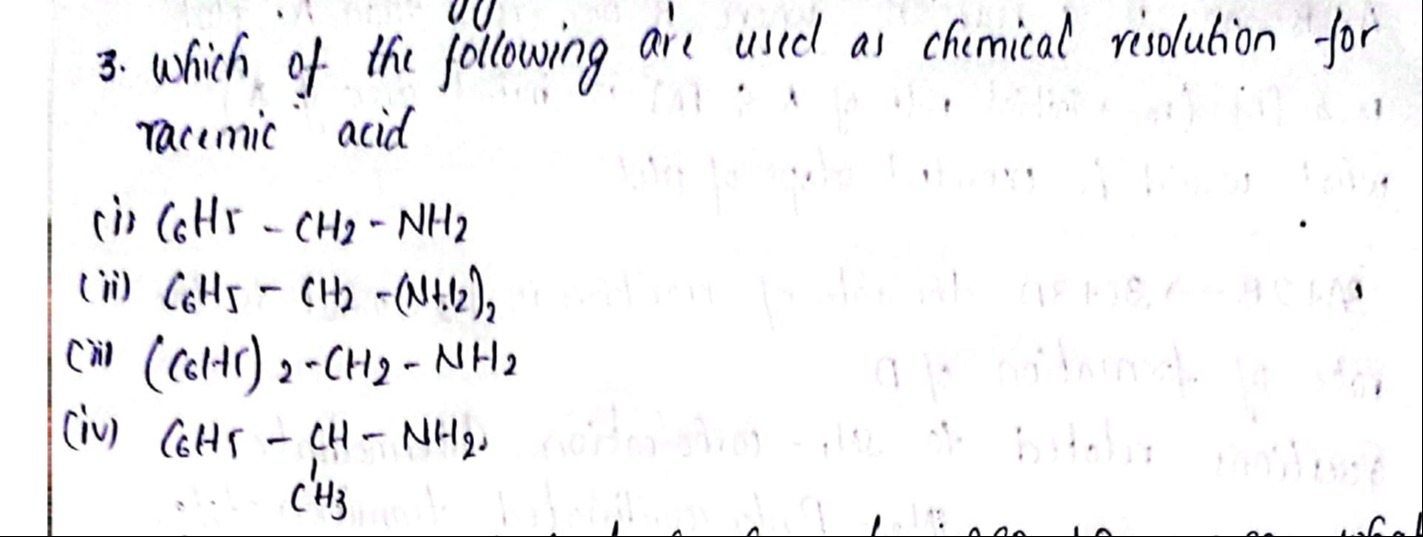 3. which of the following are used as chemical resolution for
racemic acid
(i) C6H5 - CH2 - NH2
(ii) C6H5 - CH2 - (NH2)2
(iii) (C6H5)2 - CH2 - NH2
(iv) C6H5 - CH - NH2
CH3